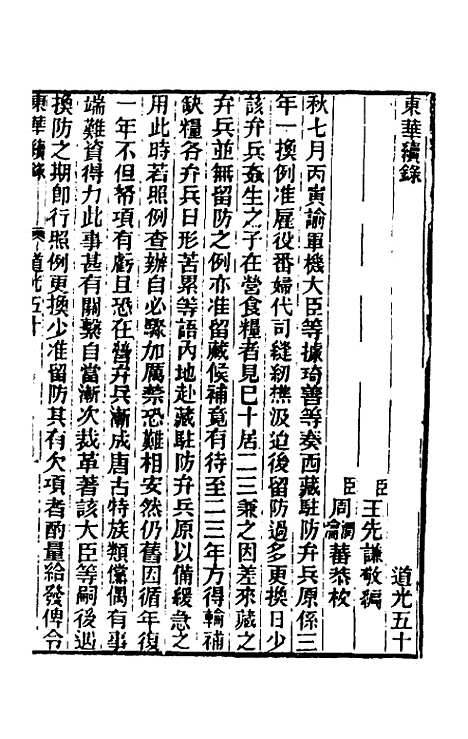 東華續錄　道光五十
臣王先謙敬編
臣周潤蕃周瀹蕃恭校
秋七月丙寅諭軍機大臣等據琦善等奏西藏駐防弁兵原係三
年一換例准雇役番婦代司縫紉樵汲迨後留防過多更換日少
該弁兵姦生之子在營食糧者見已十居二三兼之因差來藏之
弁兵並無留防之例亦准留藏候補竟有待至二三年方得輪補
缺糧各弁兵日形苦累等語內地赴藏駐防弁兵原以備緩急之
用此時若照例查辦自必驟加厲禁恐難相安然仍舊因循年復
一年不但帑項有虧且恐在營弁兵漸成唐古特族類儻偶有事
端難資得力此事甚有關繫自當漸次裁革著該大臣等嗣後遇
換防之期卽行照例更換少准留防其有欠項者酌量給發俾令
東華續錄　道光五十